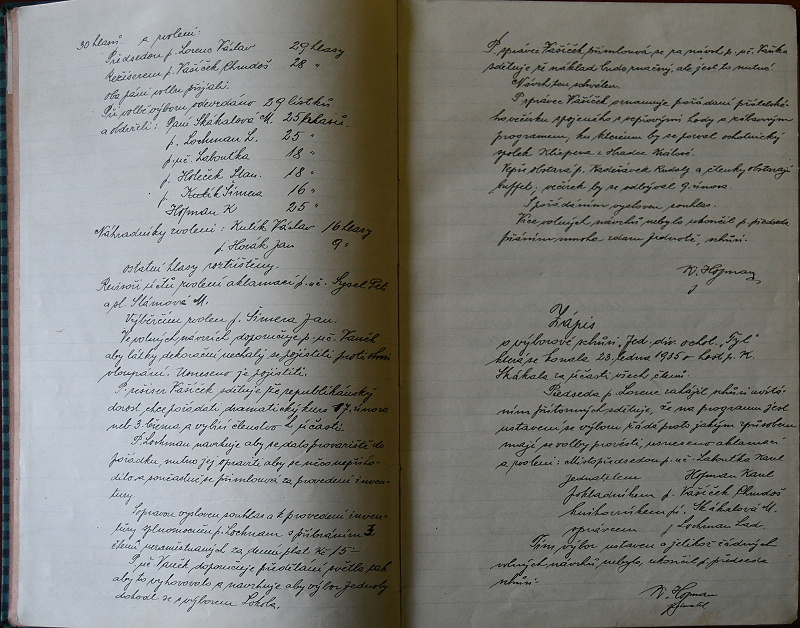 30 hlasů. a zvoleni:
Předsedou p. Lorenc Václav 29 hlasy
Režiserem p. Vašíček Chrudoš 28 "
oba páni volbu přijali.
Při volbě výboru odevzdáno 29 lístků
a obdrželi: Paní Skákalová M. 25 hlasů.
p. Lochman L. 25 "
p. uč. Laboutka 18 "
p. Holeček Stan. 18 "
p. Šimera 16 "
Hofman K 25 "
Náhradníky zvoleni: Kulík Václav 16 hlasy
p Horák Jan 9 "
ostatní hlasy roztříštěny.
Revisoři účtů zvoleni aklamací p. uč. Sysel Petr
a sl. Slámová M.
Výběrčím zvolen p. Šimera Jan.
Ve volných návrzích doporučuje p. uč. Vaněk
aby látky dekorační nechaly se pojistiti proti
vloupání. Usneseno je pojistiti.
P. režiser Vašíček sděluje že republikánský
dorost chce pořádati dramatický kurs 17. února
neb 3. března a vybízí členstvo k účasti.
P. Lochman navrhuje aby se dalo do
pořádku, nutno jej opraviti aby se něco nepřiho-
dilo a současně se přimlouvá za provedení inven-
tury.
Opravou vysloven souhlas a k provedení inven-
tury zplnomocněn p. Lochman s přibráním 3
členů nezaměstnaných za denní plat Kč 15-
P. uč. Vaněk doporučuje předělání světla tak
aby to vyhovovalo a navrhuje aby výbor Jednoty
dohodl se s výborem Sokola.
P správce Vašíček přimlouvá se za návrh p. uč. Vaňka
sděluje že náklad bude značný, ale jest to nutné.
Návrh ten schválen.
P správce Vašíček oznamuje pořádání přátelské-
ho večírku spojeného s vepřovými hody a zábavným
programem, ku kterému by se pozval ochotnický
spolek Klicpera z Hradce Králové.
Vepře obstará p. Rudolf a členky obstarají
buffet; večírek by se odbýval 9. února.
S pořádáním vysloven souhlas.
Více volných návrhů nebylo ukončil p. předseda
přáním mnoho zdaru Jednotě, schůzi.
K. Hofman
j
Zápis
o výborové schůzi "Jed. div. ochot. "Tyl"
která se konala 23. ledna 1935 v host p. K.
Skákala za účasti všech členů.
Předseda p Lorenc zahájil schůzi uvítá-
ním přítomných sděluje, že na programu jest
ustavení se výboru žádá proto jakým způsobem
mají se volby provésti, usneseno aklamací
a zvoleni: Místopředsedou p. uč. Laboutka Karel
Jednatelem Hofman Karel
Pokladníkem p. Vašíček Chrudoš
knihovníkem p. Skákalová M.
správcem p Lochman Lad.
Tím výbor ustaven a jelikož žádných
volných návrhů nebylo, ukončil p. předseda
schůzi.
K. Hofman
jednatel